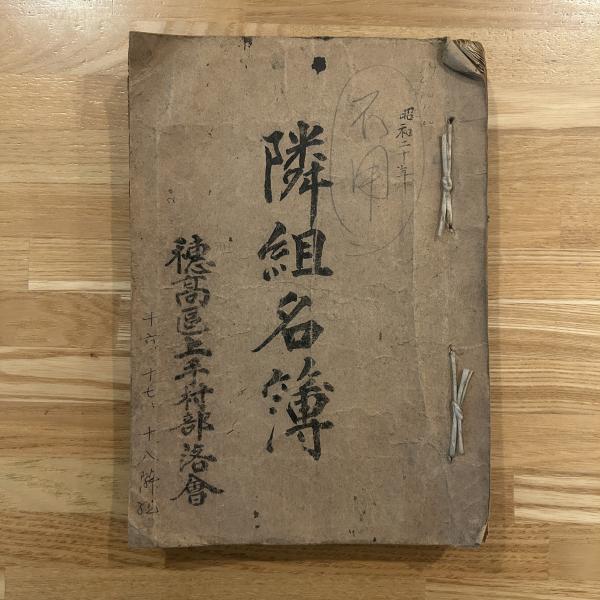 昭和二十年
不用
隣組名簿
穂高區上手村部落會
十六、十七、十八隣組